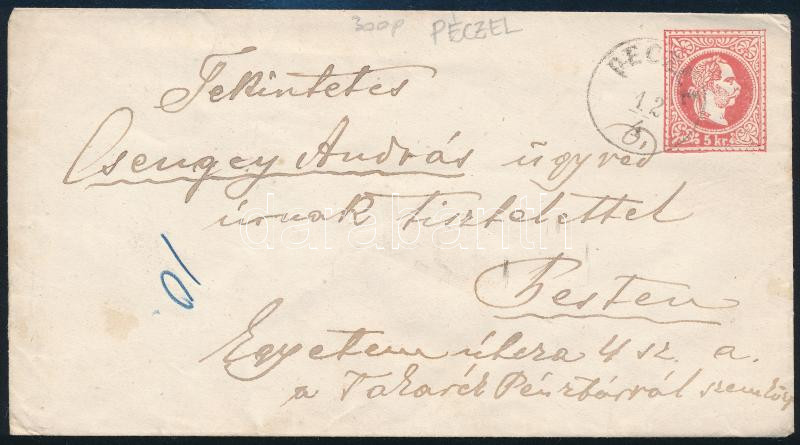 300p PÉCZEL
PECZ
12
6
5 kr.
Tekintetes
Csengey András ügyvéd
úrnak tisztelettel
Pesten
Egyetem útcza 4 sz. a.
a Takarék Pénztárral szemköz
10
darabanth